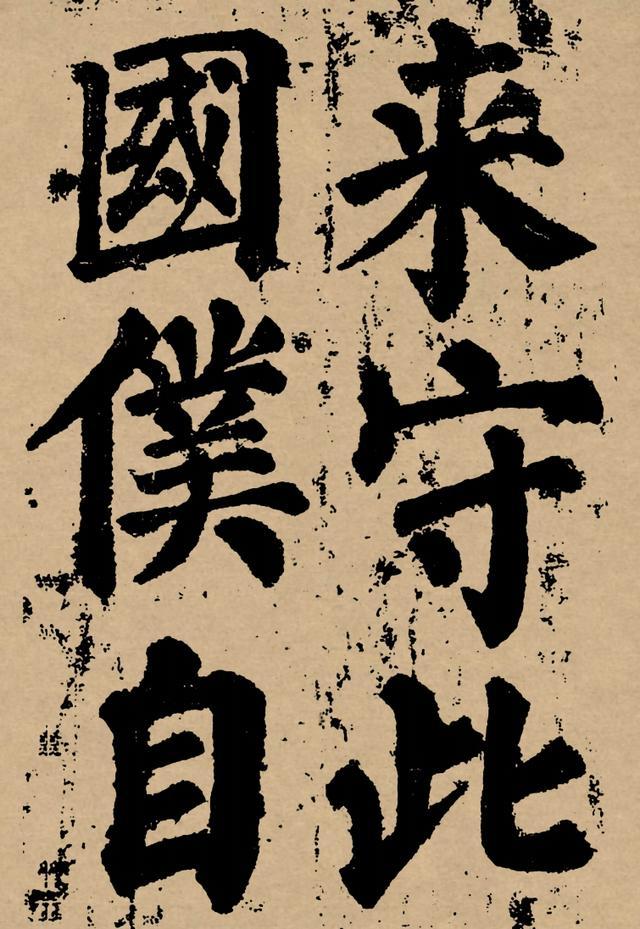 来守此
國僕自